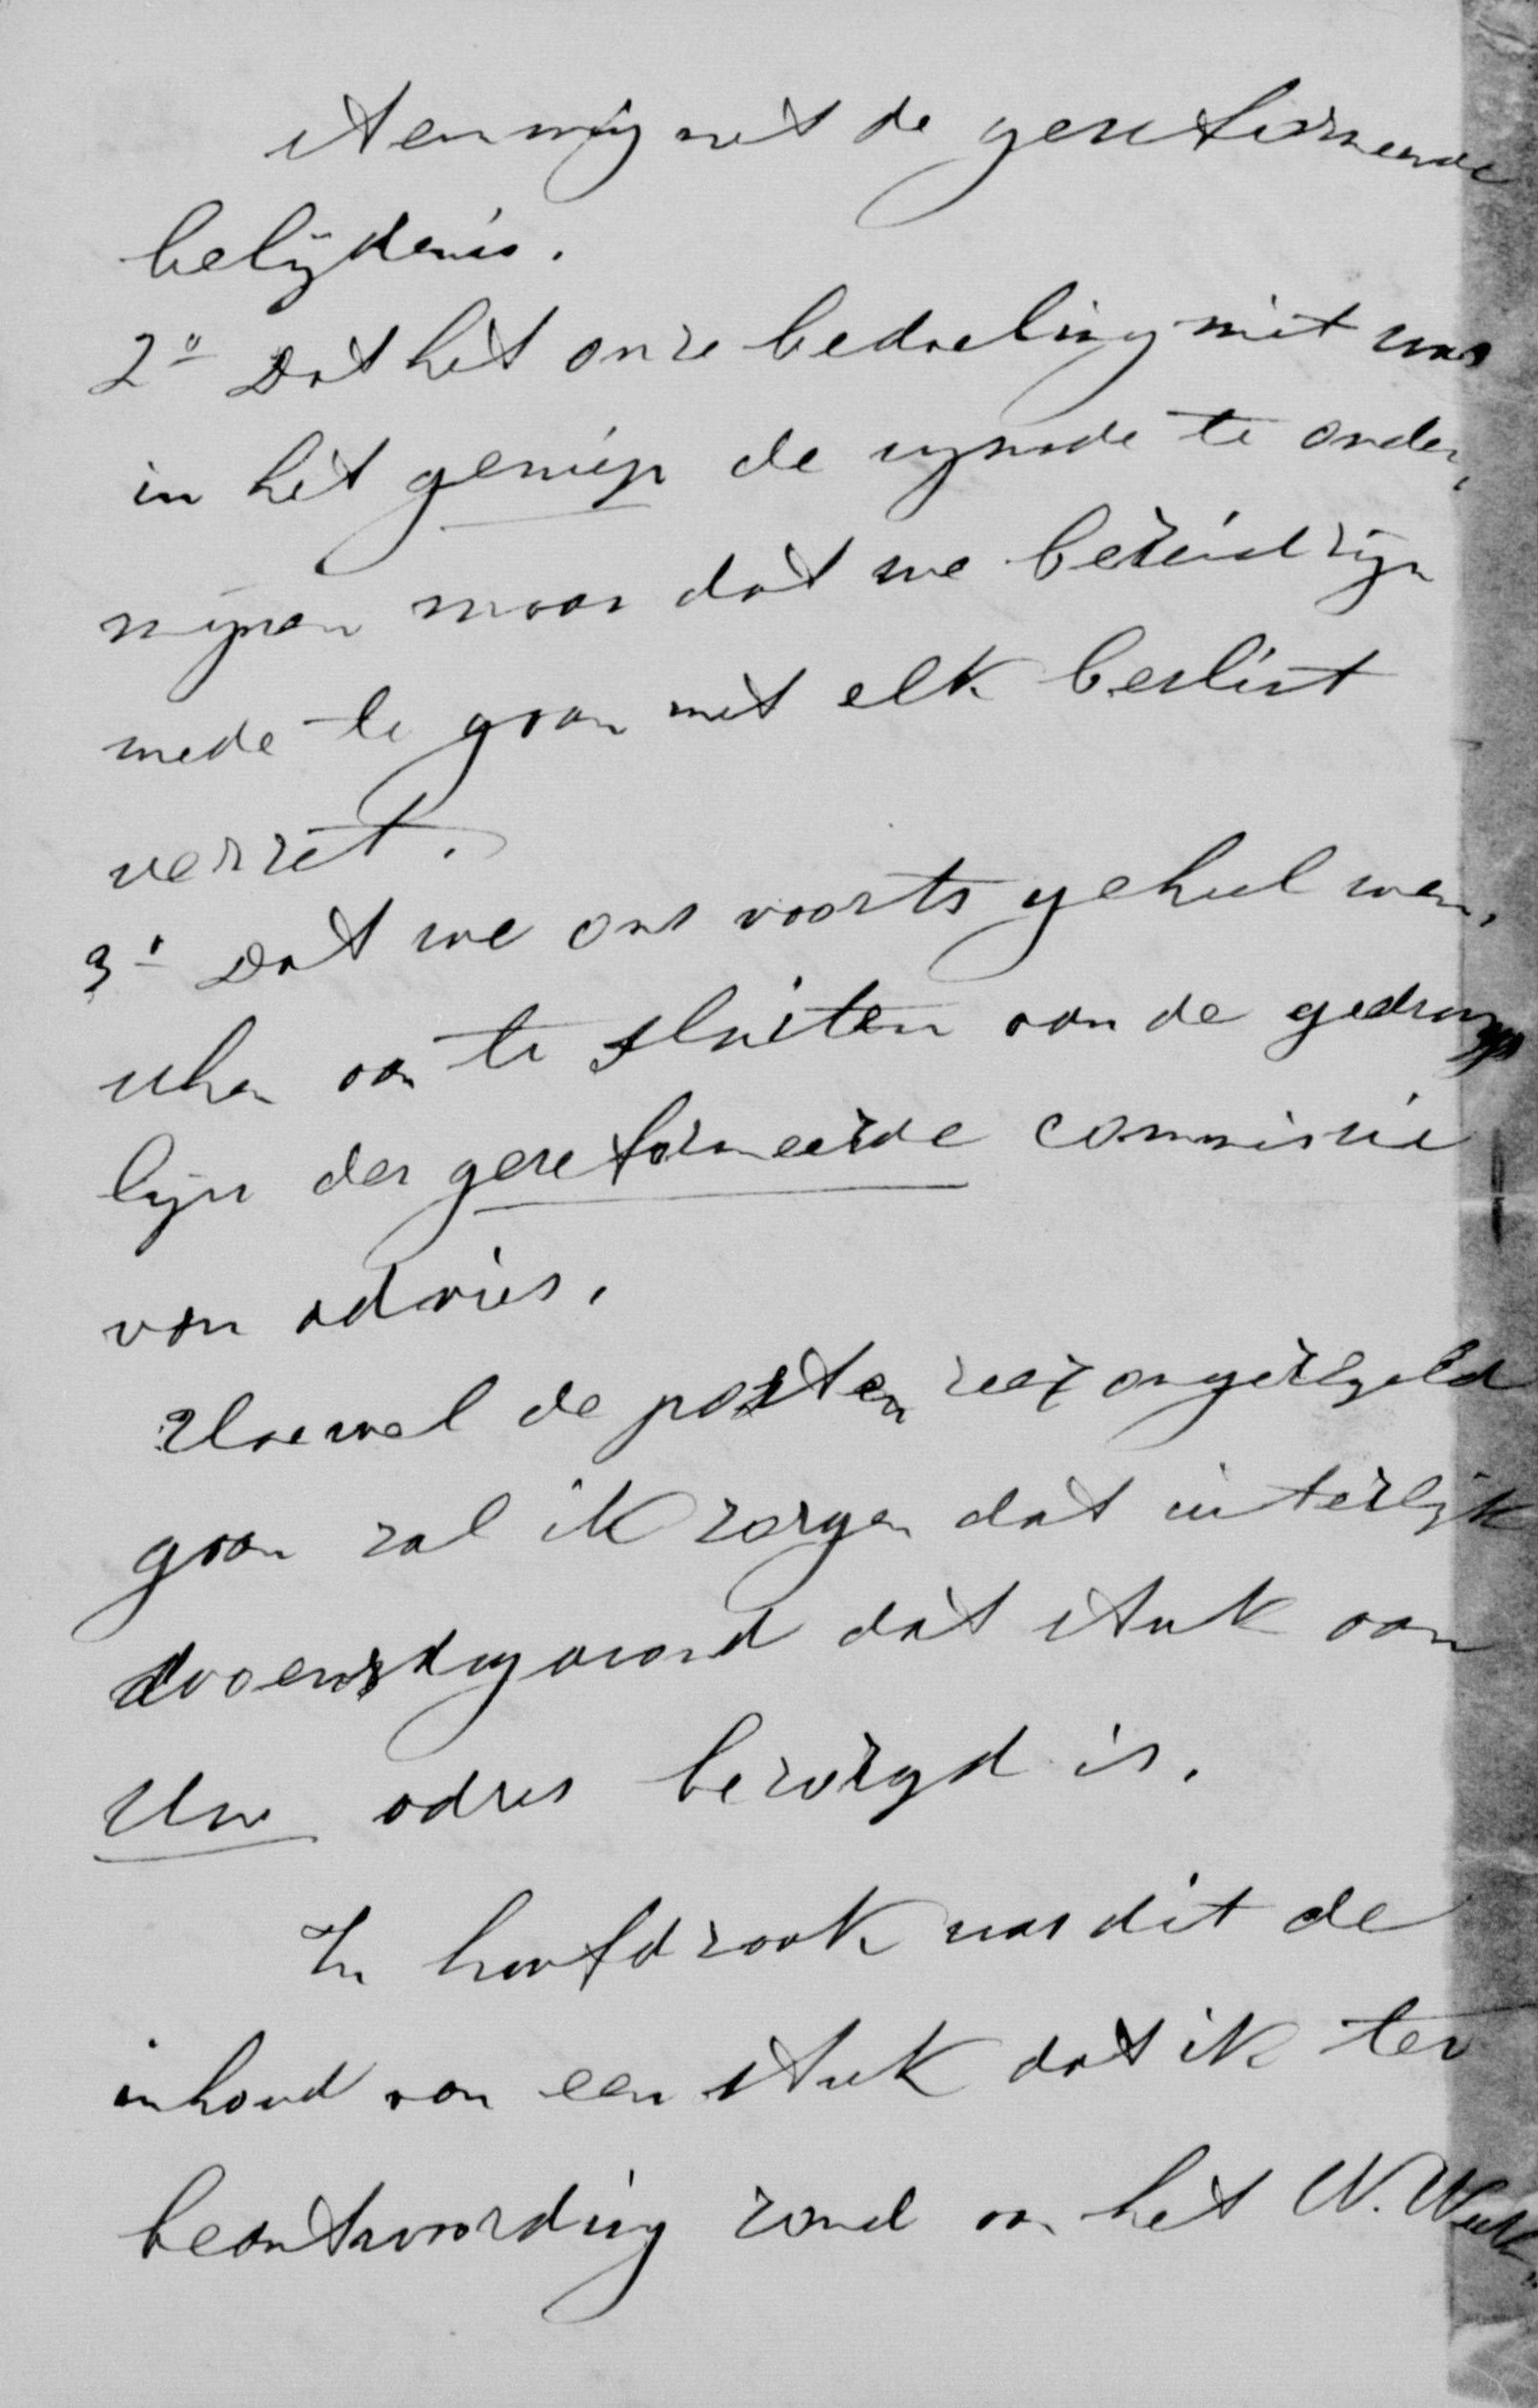 stemming met de gereformeerde
belijdenis.
2o Dat het onze bedoeling niet was
in het geniep de synode te onder,
mijnen maar dat we bereid zijn
mede te gaan met elk beslist
verzet.
3o Dat we ons voorts geheel wen,
schen aan te sluiten aan de gedrags
lijn der gereformeerde commissie
van advies.
Hoewel de posten zeer ongeregeld
gaan zal ik zorgen dat uiterlijk
dvoensdagavond dat stuk aan
Uw adres bezorgd is.
In hoofdzaak was dit de
inhoud van een stuk dat ik ter
beantwoording zond aan het W.